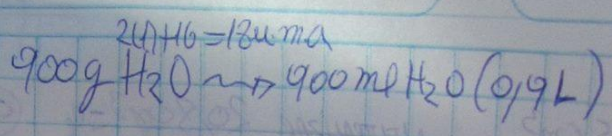 2(1)+16=18uma
900g H₂O ⇝ 900ml H₂O (0,9L)